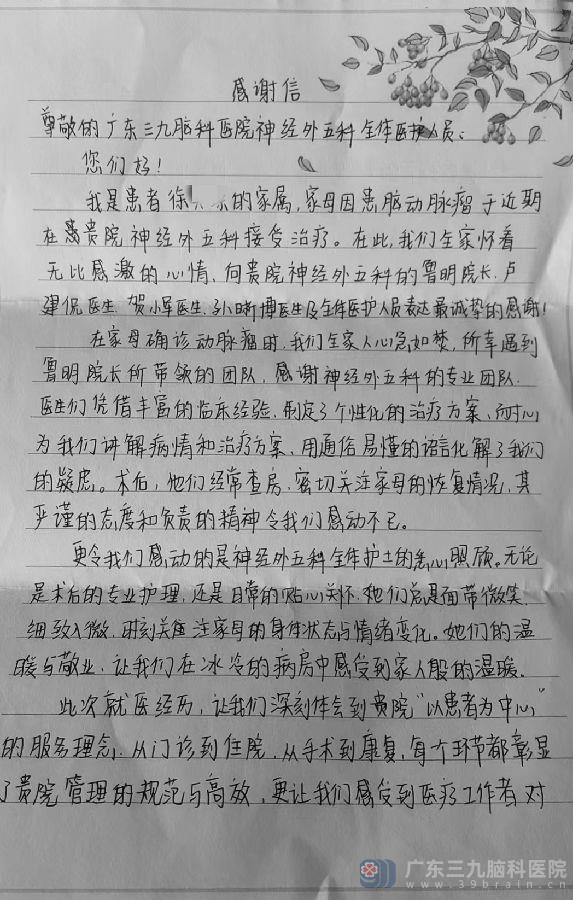 感谢信
尊敬的广东三九脑科医院神经外五科全体医护人员：
您们好！
我是患者徐 的家属，家母因患脑动脉瘤于近期
在患贵院神经外五科接受治疗。在此，我们全家怀着
无比感激的心情、向贵院神经外五科的鲁明院长、卢
建侃医生、贺小军医生、孙晰博医生及全体医护人员表达最诚挚的感谢！
在家母确诊动脉瘤时，我们全家人心急如焚，所幸遇到
鲁明院长所带领的团队，感谢神经外五科的专业团队.
医生们凭借丰富的临床经验、制定了个性化的治疗方案、耐心
为我们讲解病情和治疗方案、用通俗易懂的语言化解了我们
的疑虑。术后，他们经常查房、密切关注家母的恢复情况，其
严谨的态度和负责的精神令我们感动不已。
更令我们感动的是神经外五科全体护士的悉心照顾。无论
是术后的专业护理，还是日常的贴心关怀，她们总是面带微笑、
细致入微、时刻关注家母的身体状态与情绪变化。她们的温
暖与敬业、让我们在冰冷的病房中感受到家人般的温暖.
此次就医经历，让我们深刻体会到贵院“以患者为中心”
的服务理念、从门诊到住院、从手术到康复，每个环节都彰显
了贵院管理的规范与高效，更让我们感受到医疗工作者对
广东三九脑科医院
www.39brain.cn